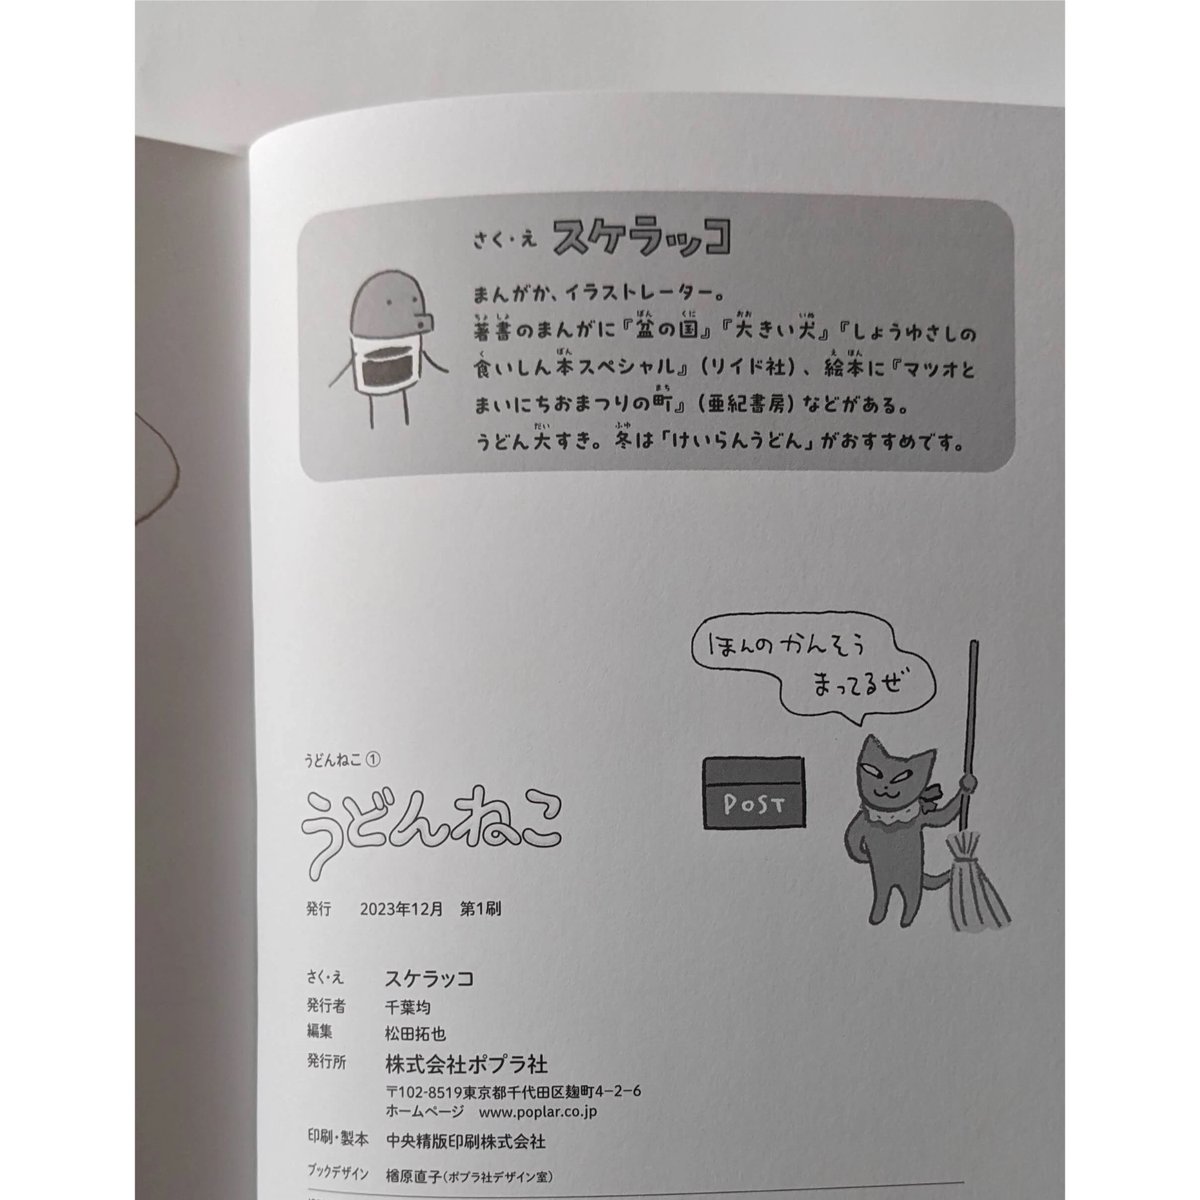 さく・え スケラッコ
まんがか、イラストレーター。
著書のまんがに『盆の国』『大きい犬』『しょうゆさしの
食いしん本スペシャル』（リイド社）、絵本に『マツオと
まいにちおまつりの町』（亜紀書房）などがある。
うどん大すき。冬は「けいらんうどん」がおすすめです。
ほんのかんそう
まってるぜ
POST
うどんねこ①
うどんねこ
発行 2023年12月 第1刷
さく・え スケラッコ
発行者 千葉均
編集 松田拓也
発行所 株式会社ポプラ社
〒102-8519東京都千代田区麹町4−2−6
ホームページ www.poplar.co.jp
印刷・製本 中央精版印刷株式会社
ブックデザイン 楢原直子（ポプラ社デザイン室）